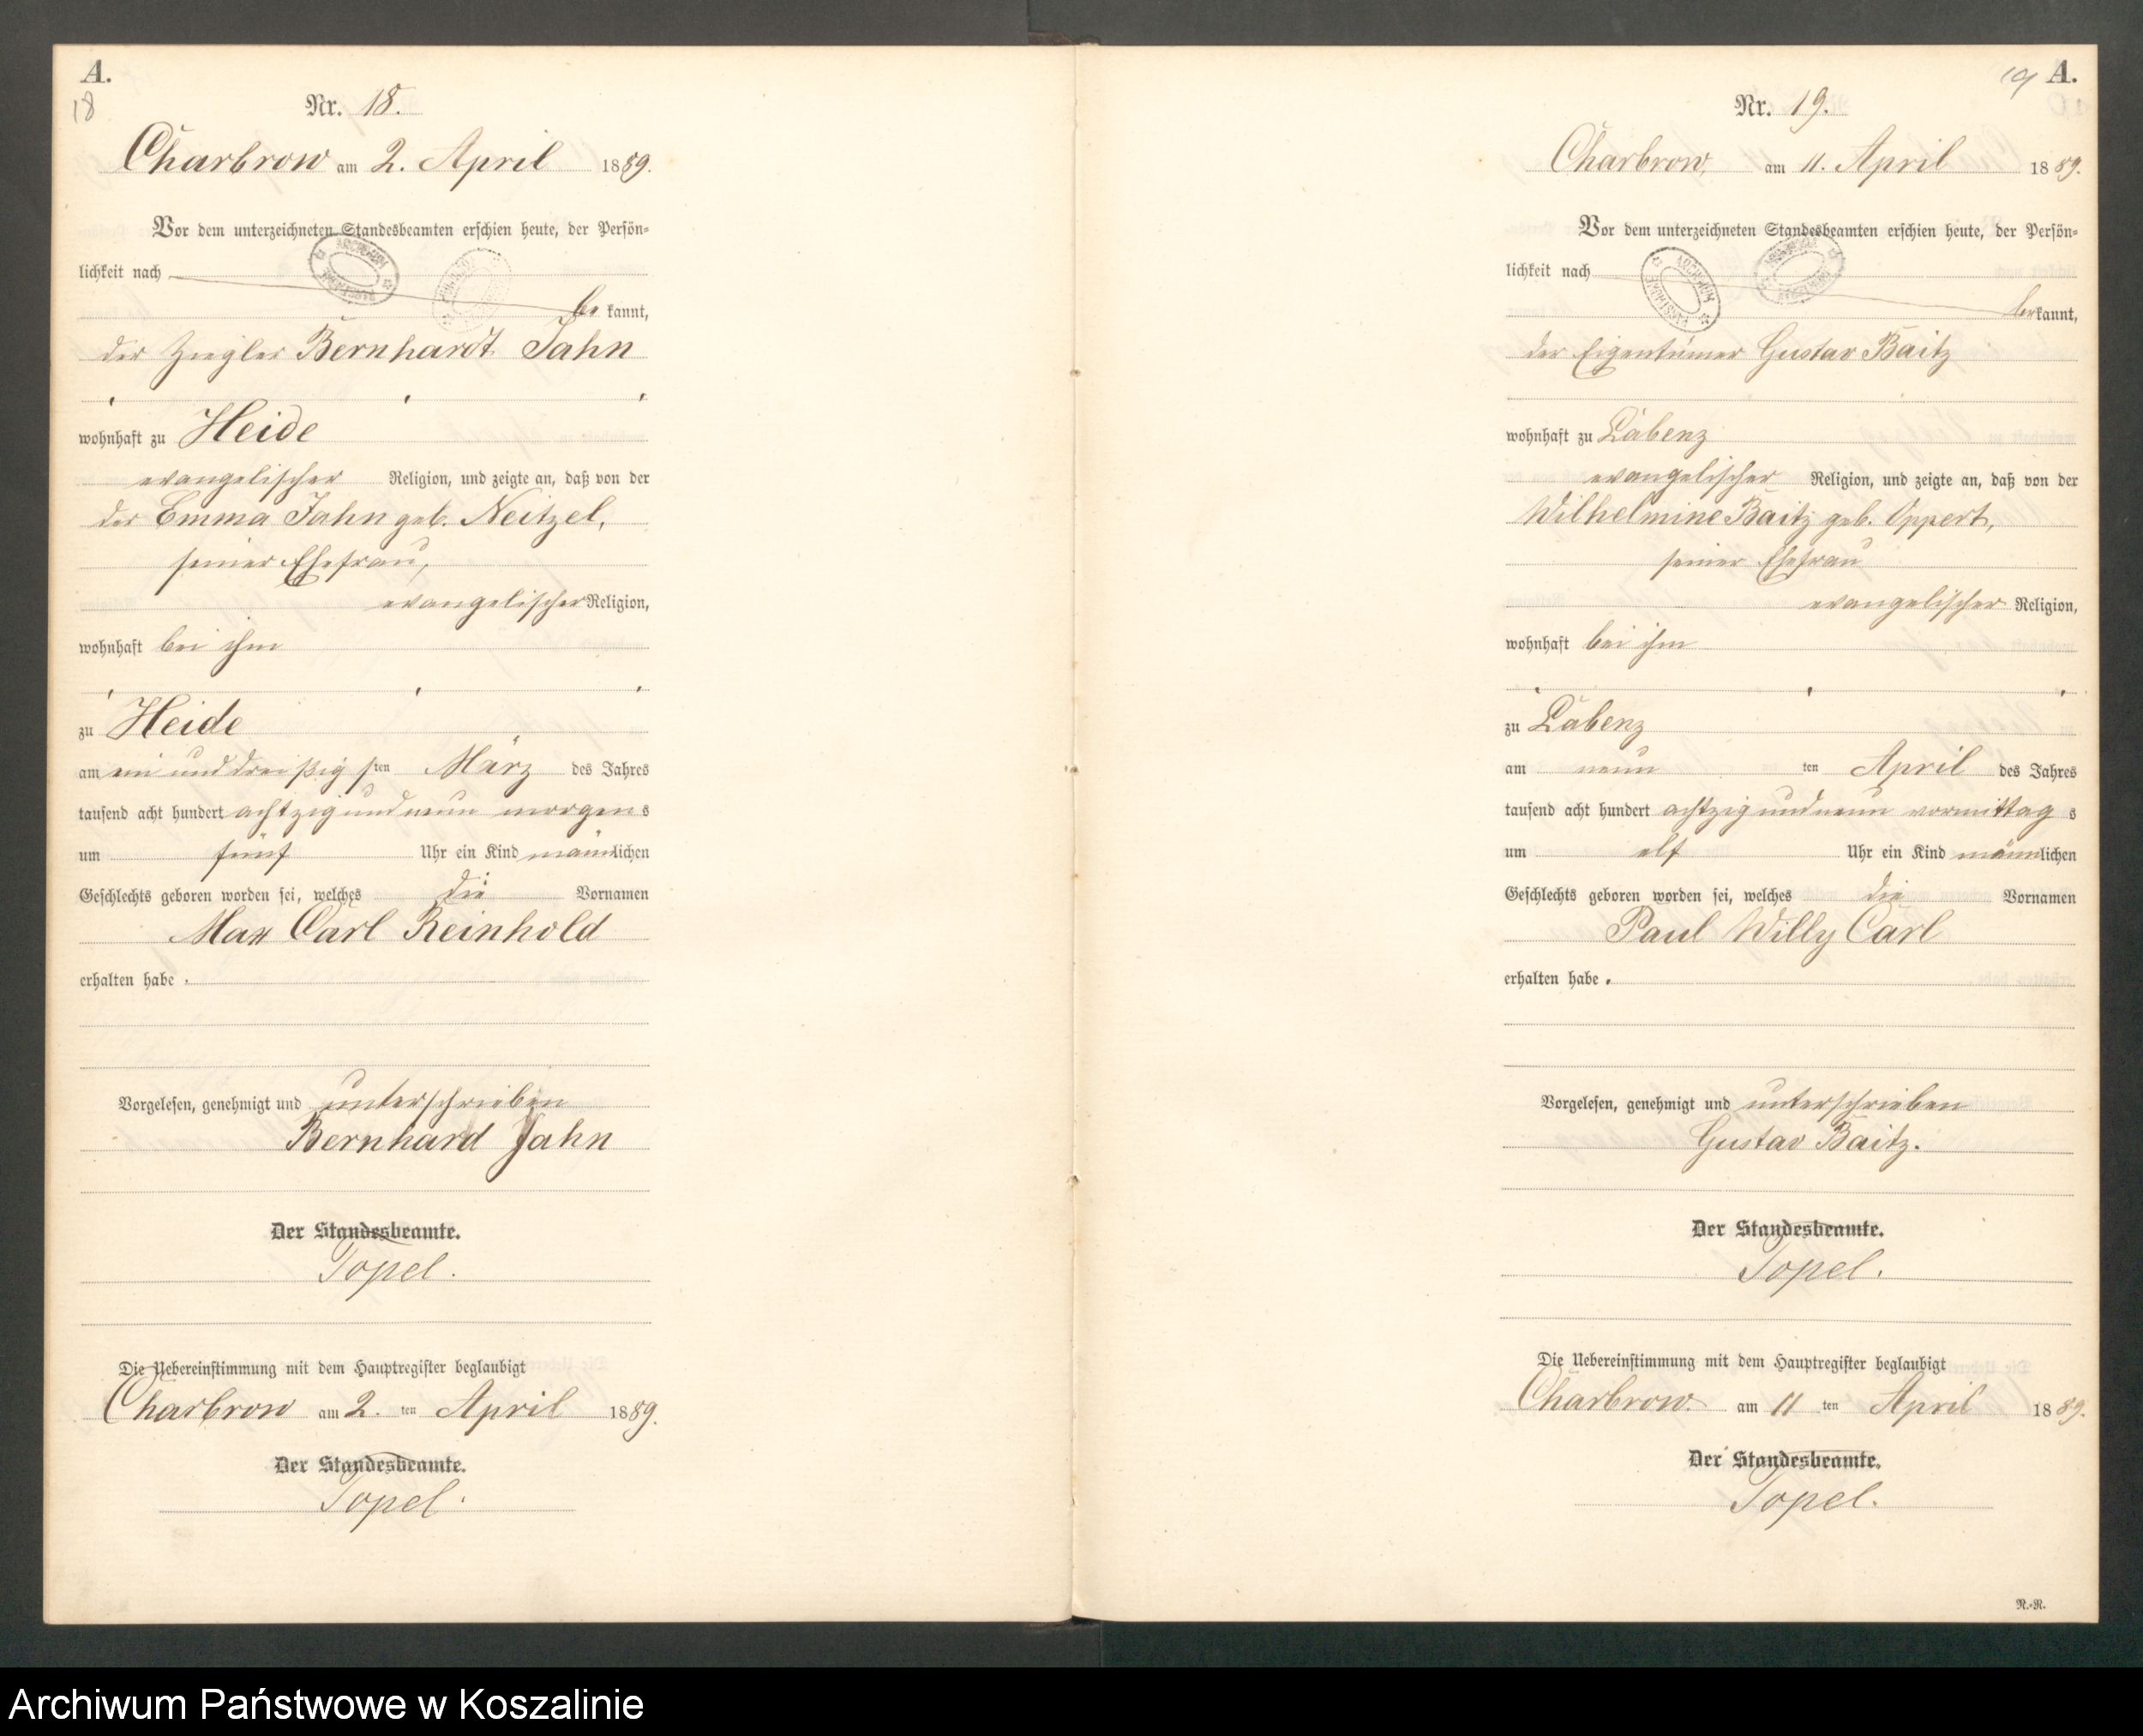 A.
18
Nr. 18.
Charbrow am 2. April 1889.
Vor dem unterzeichneten Standesbeamten erschien heute, der Persön-
lichkeit nach
be kannt,
der Ziegler Bernhardt Jahn
wohnhaft zu Heide
evangelischer Religion, und zeigte an, daß von der
der Emma Jahn geb. Neitzel,
seiner Ehefrau,
evangelischer Religion,
wohnhaft bei ihm
zu Heide
am ein und dreißig sten März des Jahres
tausend acht hundert achtzig und neun morgens
um fünf Uhr ein Kind männlichen
Geschlechts geboren worden sei, welches die Vornamen
Max Carl Reinhold
erhalten habe.
Vorgelesen, genehmigt und unterschrieben
Bernhard Jahn
Der Standesbeamte.
Topel.
Die Uebereinstimmung mit dem Hauptregister beglaubigt
Charbrow am 2. ten April 1889.
Der Standesbeamte.
Topel.
19 A.
Nr. 19.
Charbrow, am 11. April 1889.
Vor dem unterzeichneten Standesbeamten erschien heute, der Persön-
lichkeit nach
be kannt,
der Eigentümer Gustav Baitz
wohnhaft zu Labenz
evangelischer Religion, und zeigte an, daß von der
Wilhelmine Baitz geb. Oppert,
seiner Ehefrau
evangelischer Religion,
wohnhaft bei ihm
zu Labenz
am neun ten April des Jahres
tausend acht hundert achtzig und neun vormittags
um elf Uhr ein Kind männlichen
Geschlechts geboren worden sei, welches die Vornamen
Paul Willy Carl
erhalten habe.
Vorgelesen, genehmigt und unterschrieben
Gustav Baitz.
Der Standesbeamte.
Topel.
Die Uebereinstimmung mit dem Hauptregister beglaubigt
Charbrow. am 11 ten April 1889.
Der Standesbeamte.
Topel.
R.-R.
Archiwum Państwowe w Koszalinie